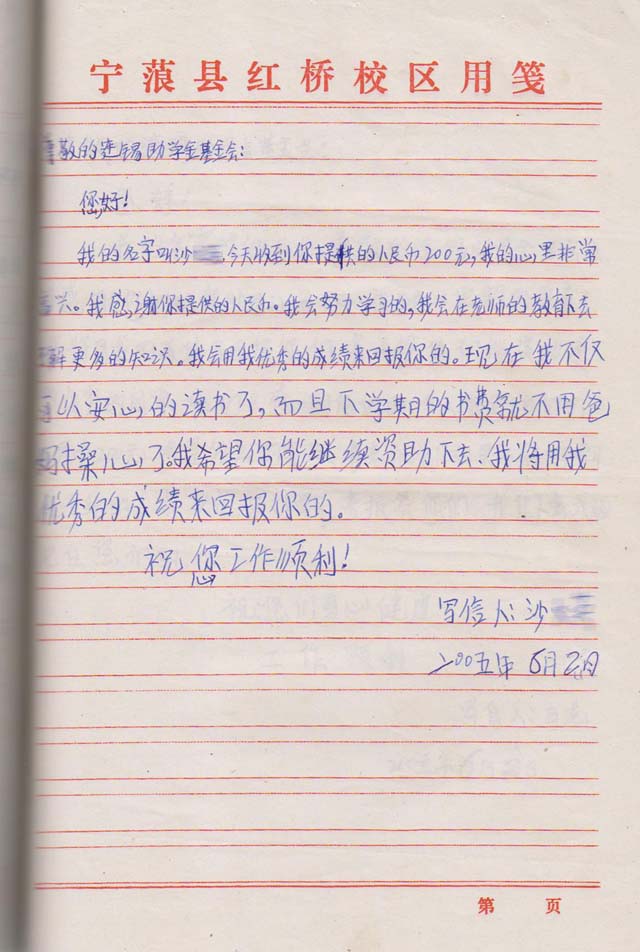 宁蒗县红桥校区用笺
尊敬的建锡助学金基金会:
您好!
我的名字叫沙 ,今天收到你提供的人民币200元,我的心里非常
高兴。我感谢你提供的人民币。我会努力学习的,我会在老师的教育下去
了解更多的知识。我会用我优秀的成绩来回报你的。现在我不仅
可以安心的读书了,而且下学期的书费就不用爸
妈操心了。我希望你能继续资助下去、我将用我
优秀的成绩来回报你的。
祝您工作顺利!
写信人:沙
二00五年 6月2日
第 页